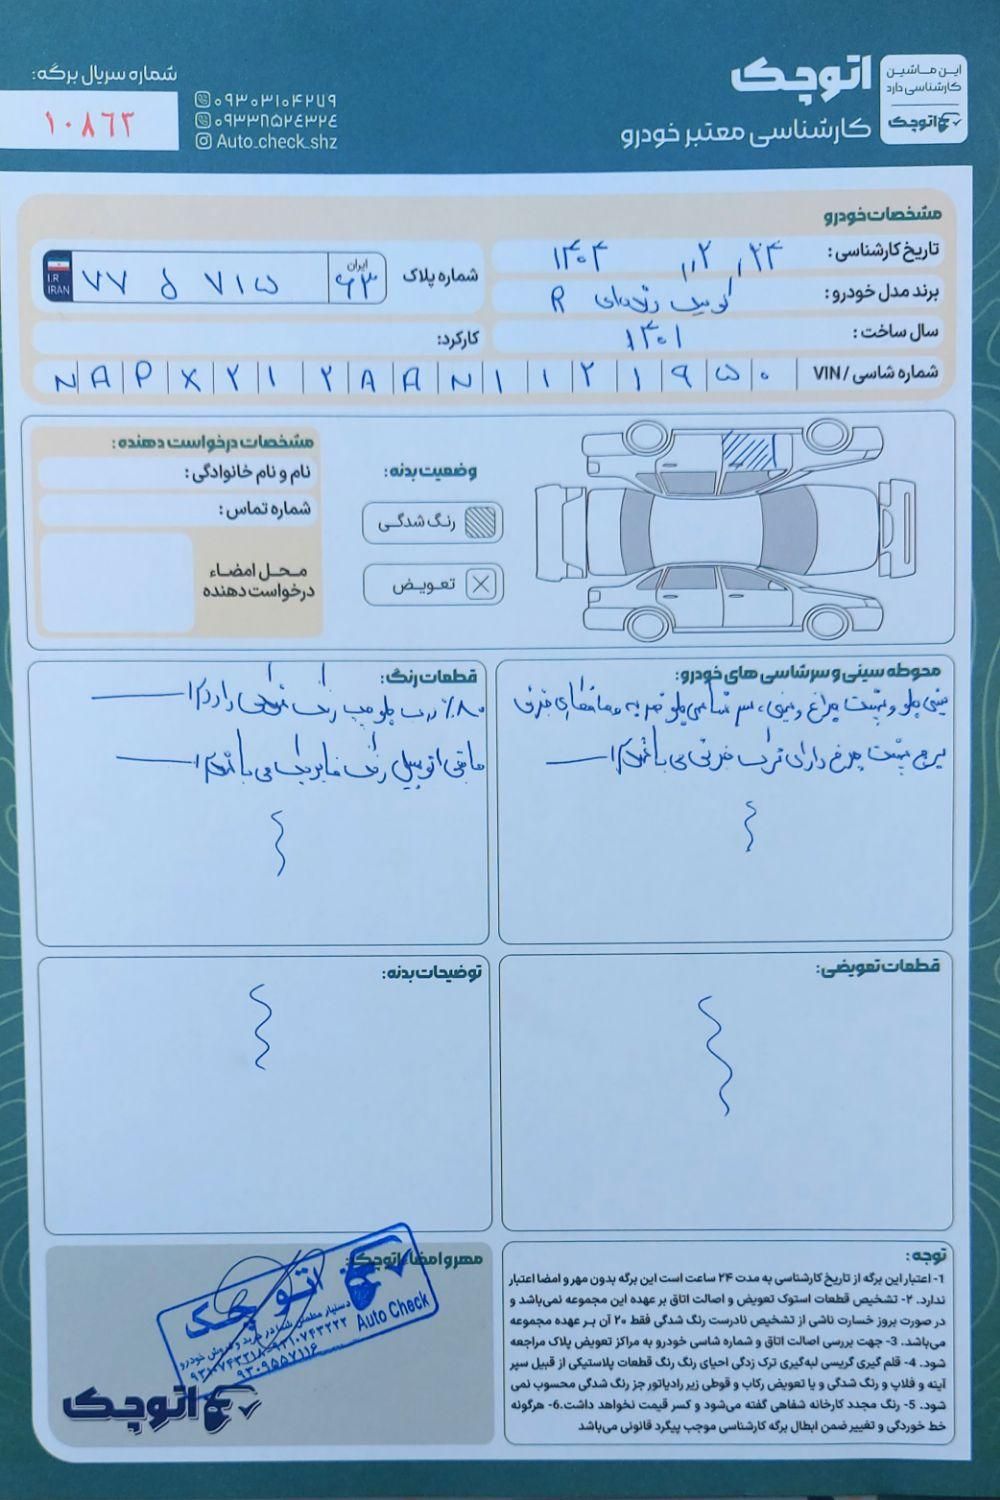 این ماشین
کارشناسی دارد
اتوچک
اتوچک
کارشناسی معتبر خودرو
۰۹۳۰۳۱۰۴۲۷۹
۰۹۳۳۸۵۲۴۳۲۴
Auto_check_shz
شماره سریال برگه:
۱۰۸۶۳
مشخصات خودرو
تاریخ کارشناسی: ۱۴۰۴/۲/۲۴
برند مدل خودرو: کوییک دنده‌ای R
سال ساخت: ۱۴۰۱
شماره پلاک
ایران ۶۳
۷۷ د ۷۱۵
I.R IRAN
کارکرد:
شماره شاسی / VIN
N A P X 2 1 2 A A N 1 1 2 1 9 5 0
مشخصات درخواست دهنده:
نام و نام خانوادگی:
شماره تماس:
محل امضاء
درخواست دهنده
وضعیت بدنه:
رنگ شدگی
تعویض
محوطه سینی و سرشاسی های خودرو:
سینی جلو و پشت چراغ و سینی، سر شاسی جلو ضربه
پشت چراغ دارای ترک جزئی می باشد
قطعات رنگ:
۸۰٪ درب جلو چپ رنگ دارد
مابقی اتومبیل رنگ فابریک می باشد
قطعات تعویضی:
توضیحات بدنه:
توجه:
1- اعتبار این برگه از تاریخ کارشناسی به مدت ۲۴ ساعت است این برگه بدون مهر و امضا اعتبار
ندارد. ۲- تشخیص قطعات استوک تعویض و اصالت اتاق بر عهده این مجموعه نمی‌باشد و
در صورت بروز خسارت ناشی از تشخیص نادرست رنگ شدگی فقط ۲۰ آن بر عهده مجموعه
می‌باشد. 3- جهت بررسی اصالت اتاق و شماره شاسی خودرو به مراکز تعویض پلاک مراجعه
شود. 4- قلم گیری گریسی لبه‌گیری ترک زدگی احیای رنگ رنگ قطعات پلاستیکی از قبیل سپر
آینه و فلاپ و رنگ شدگی و یا تعویض رکاب و قوطی زیر رادیاتور جز رنگ شدگی محسوب نمی
شود. 5- رنگ مجدد کارخانه شفاهی گفته می‌شود و کسر قیمت نخواهد داشت. 6- هرگونه
خط خوردگی و تغییر ضمن ابطال برگه کارشناسی موجب پیگرد قانونی می‌باشد
مهر و امضا اتوچک:
اتو چک
دستیار مطمئن شما در خرید و فروش خودرو
Auto Check
۰۹۳۰۹۵۵۷۱۱۶
اتوچک